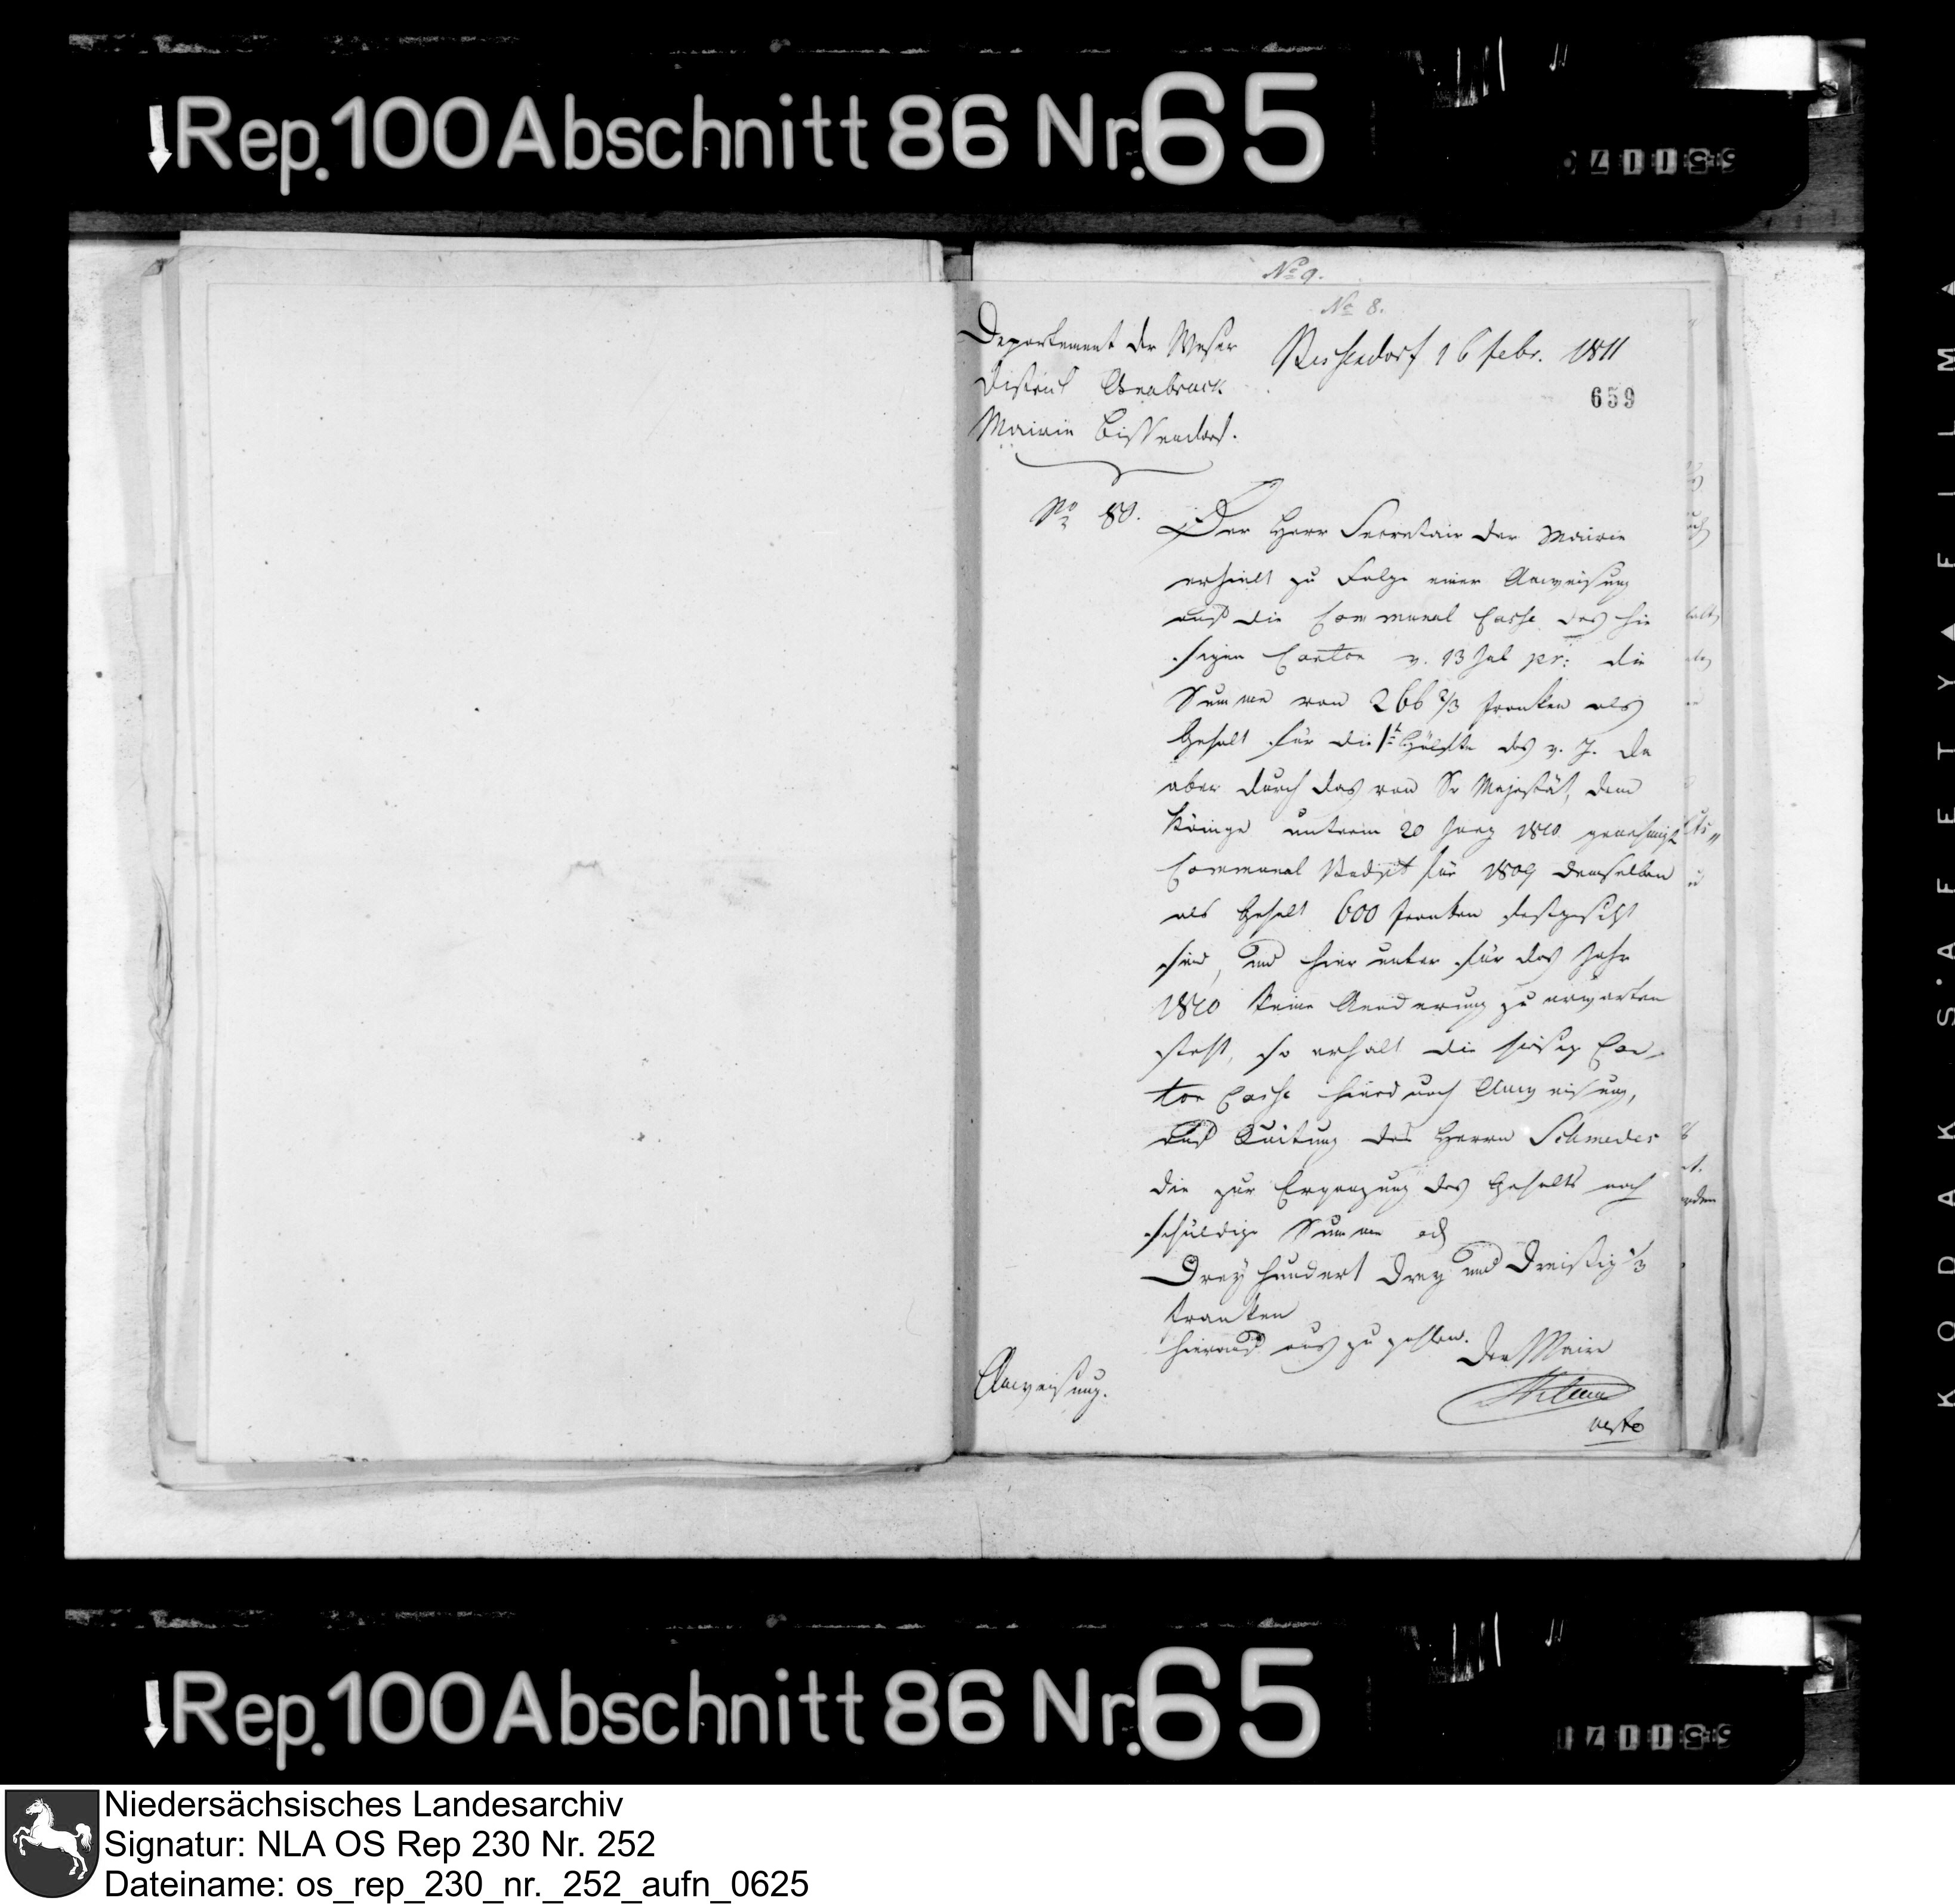 Rep. 100 Abschnitt 86 Nr. 65
No 9.
No 8.
Departement der Weser
District Osnabrück
Mairie Bissendorf.
Bissendorf 16 febr. 1811
659
No 80.
Der Herr Secretair der Mairie
erhielt zu Folge einer Anweisung
auf die Communal Casse des hie
sigen Canton v. 13 Jul pr: die
Summe von 266 2/3 Franken als
Gehalt für die 1te Hälfte des v. J. Da
aber durch das von Sr Majestät, dem
Könige unterm 20 1810 genehmigt
Communal Budjet für 1809 demselben
als Gehalt 600 Franken festgesetzt
sind, und hierunter für das Jahr
1810 keine Aenderung zu erwarten
steht, so erhält die hiesige Can-
ton Casse hierdurch Anweisung,
auf Quitung des Herrn Schmedes
die zur Ergänzung des Gehalts noch
schuldige Summe ad
Drey hundert Drey und Dreißig 1/3
Franken
hierauf aus zu zahlen.
Der Maire
Anweisung.
KODAK S·AFETY FILM
Rep. 100 Abschnitt 86 Nr. 65
Niedersächsisches Landesarchiv
Signatur: NLA OS Rep 230 Nr. 252
Dateiname: os_rep_230_nr._252_aufn_0625